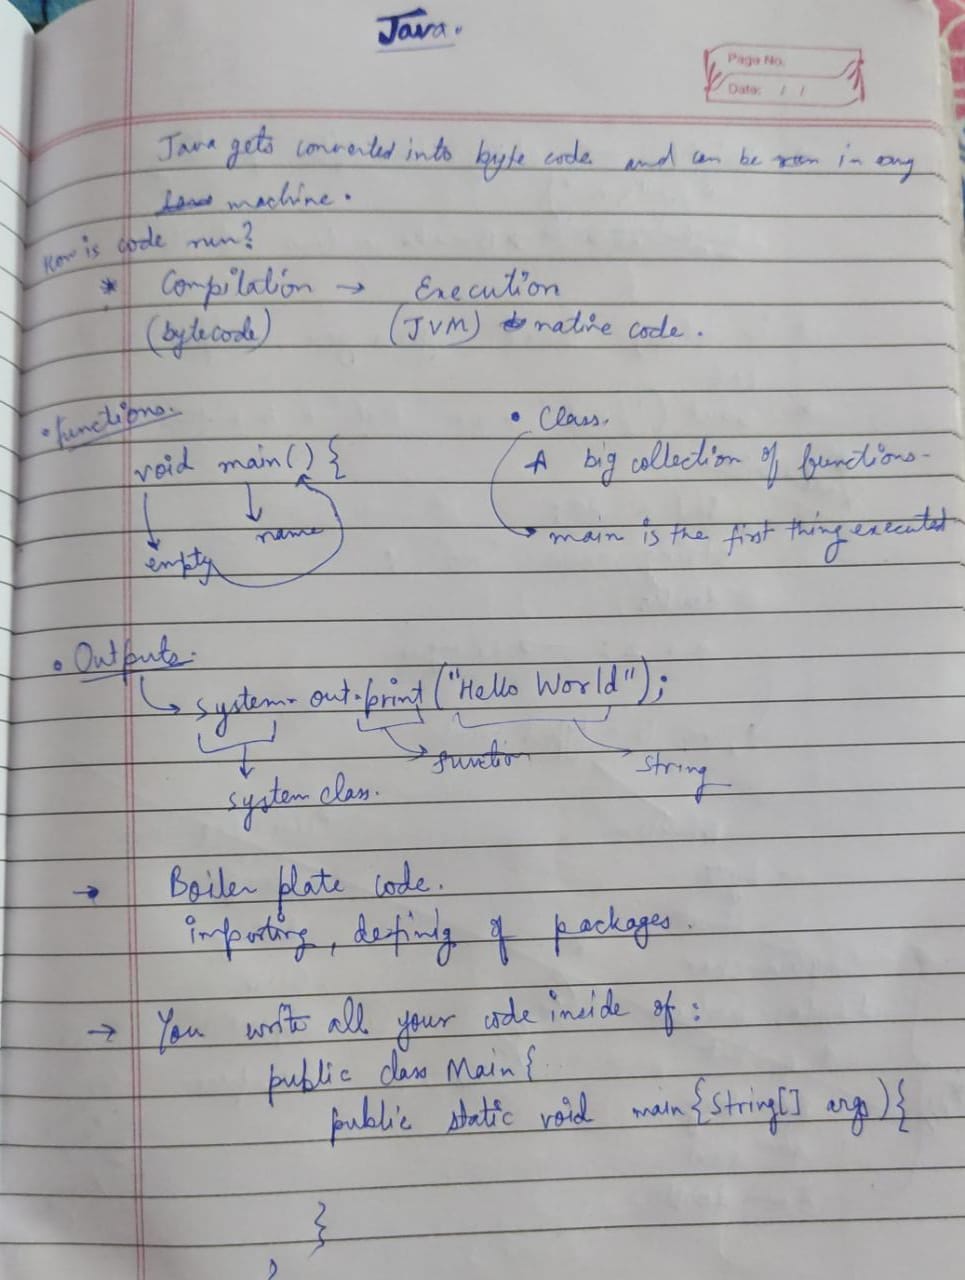 Java.
Page No.
Date: / /
Java gets converted into byte code and can be run in any
machine.
How is code run?
* Compilation → Execution
(bytecode) (JVM) native code.
• functions.
void main() {
name
empty
• Class.
A big collection of functions-
→ main is the first thing executed
• Outputs.
→ system. out.print ("Hello World");
function
string
system class.
→ Boiler plate code.
importing, definig of packages.
→ You write all your code inside of:
public class Main {
public static void main {String[] args) {
}